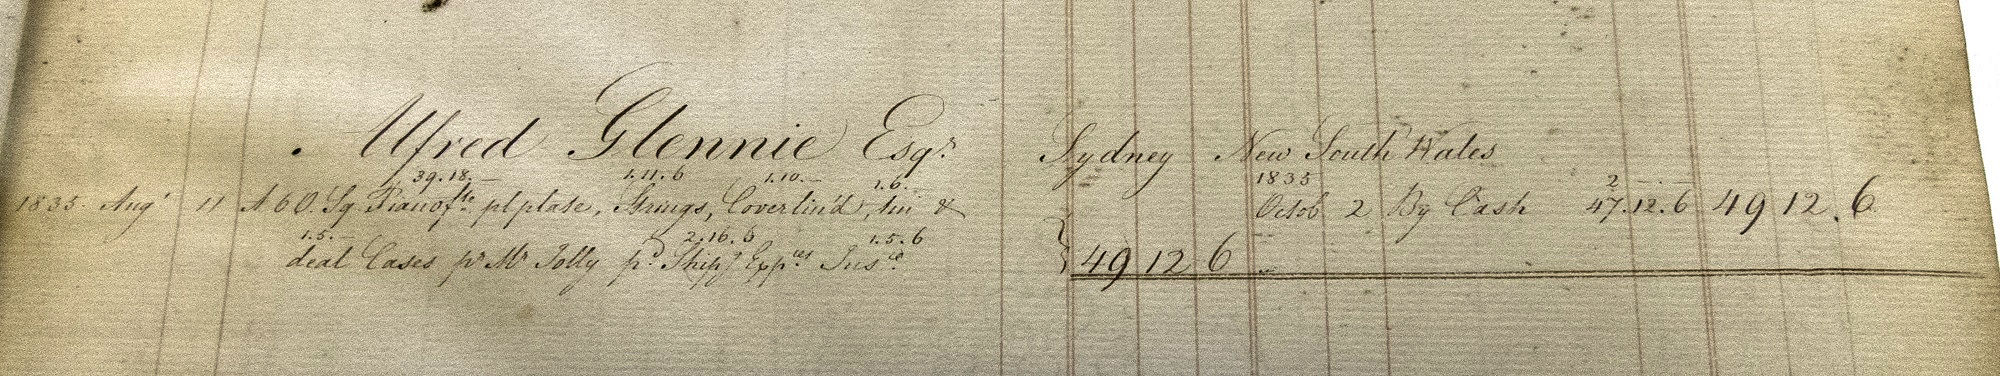 Alfred Glennie Esqr. Sydney New South Wales
39.18.— 1.11.6 1.10.— 1.6.— 1835 2.—.—
1835 Augt 11 A 6 O. Sq Pianofte pl plate, Strings, Cover lin'd, tin & Octob 2 By Cash 47.12.6 49 12.6
1.5.— 2.16.6 1.5.6
deal Cases pr Mr Jolly pd Shipg Expces Insce } 49 12 6